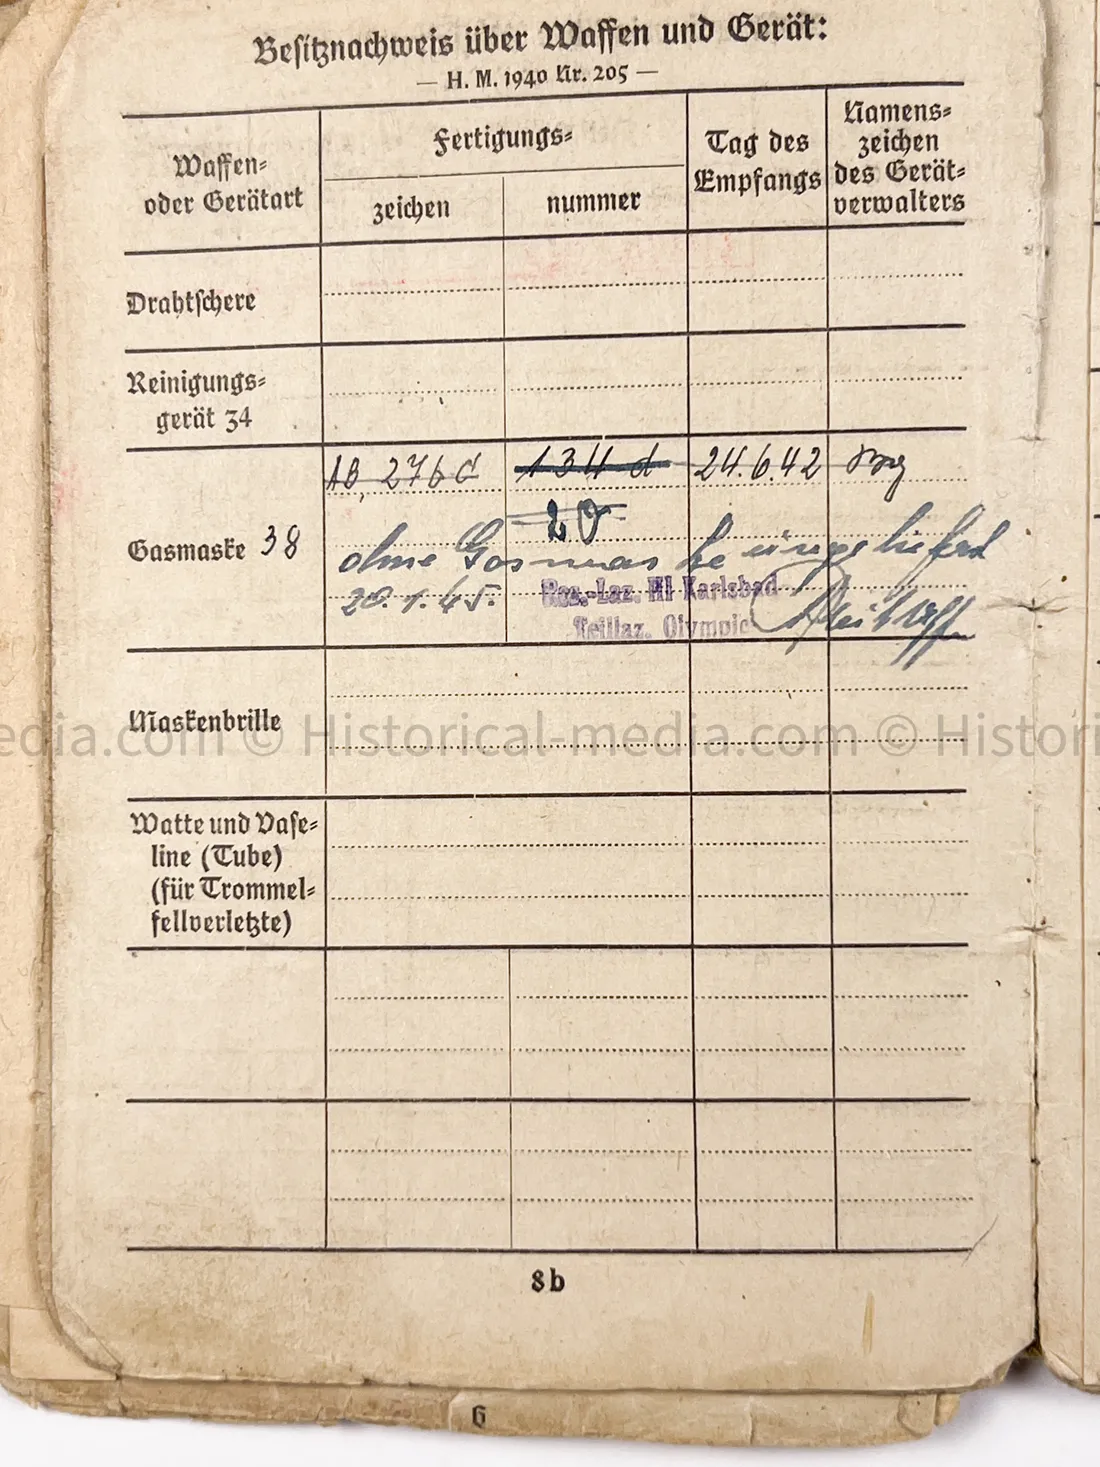 Besitznachweis über Waffen und Gerät:
— H. M. 1940 Nr. 205 —
Waffen-
oder Gerätart
Fertigungs-
zeichen
nummer
Tag des
Empfangs
Namens-
zeichen
des Gerät-
verwalters
Drahtschere
Reinigungs-
gerät 34
Gasmaske 38
AB, 276 d
134 d
24.6.42
20
ohne Gasmaske eingeliefert
20.1.45.
Res.-Laz. III Karlsbad
Teillaz. Olympic
Maskenbrille
edia.com © Historical-media.com © Histori
Watte und Vase-
line (Tube)
(für Trommel-
fellverletzte)
8b
6